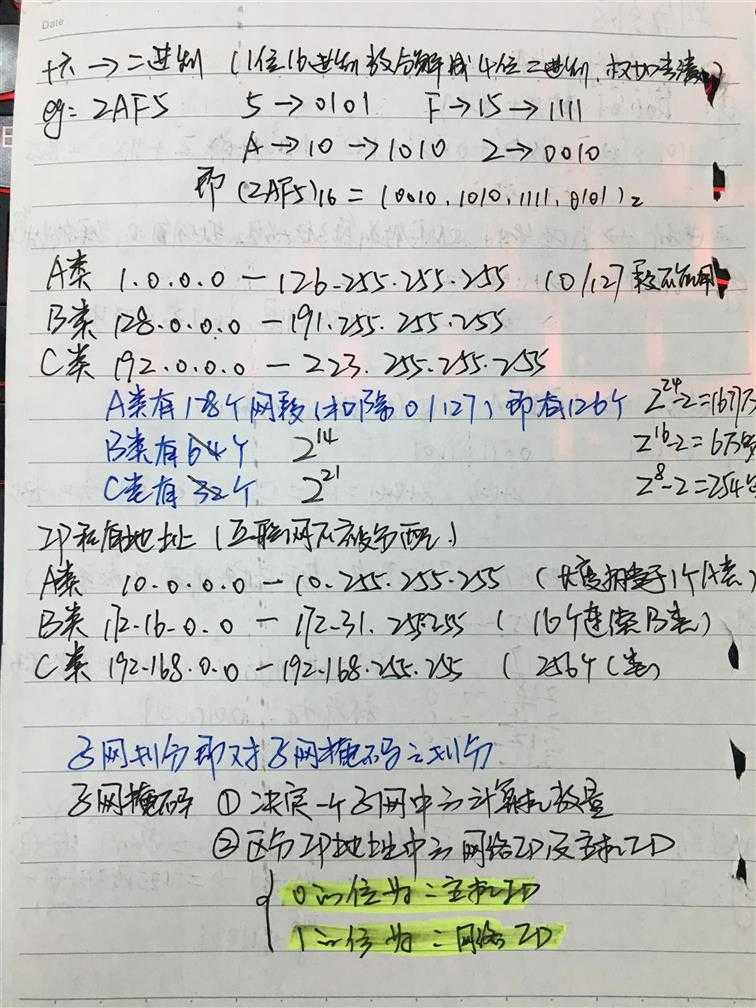 Date
十六→二进制 (1位16进制数分解成4位二进制,权相当清
eg: 2AF5 5→0101 F→15→1111
A→10→1010 2→0010
即 (2AF5)16 = (0010,1010,1111,0101)2
A类 1.0.0.0 - 126.255.255.255 (0/127 段不启用
B类 128.0.0.0 - 191.255.255.255
C类 192.0.0.0 - 223.255.255.255
A类有128个网段(扣除0/127)即有126个 2^24-2=1677万
B类有64个 2^14 2^16-2=6万多
C类有32个 2^21 2^8-2=254个
IP私有地址 (互联网不被分配)
A类 10.0.0.0 - 10.255.255.255 (长度相当于1个A类)
B类 172.16.0.0 - 172.31.255.255 (16个连续B类)
C类 192.168.0.0 - 192.168.255.255 (256个C类)
子网划分即对子网掩码之划分
子网掩码 ① 决定一个子网中之计算机数量
② 区分IP地址中之网络ID及主机ID
{ 0的位为:主机ID
1的位为:网络ID